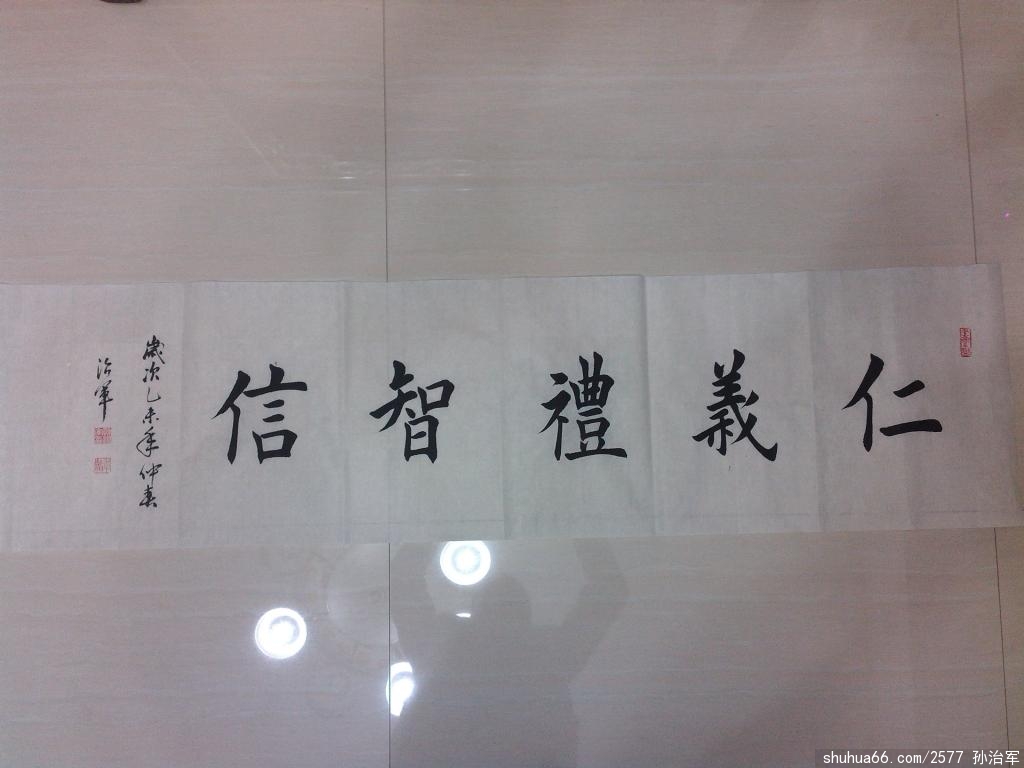 仁義禮智信
歲次乙未年仲春
治軍
shuhua66.com/2577 孙治军